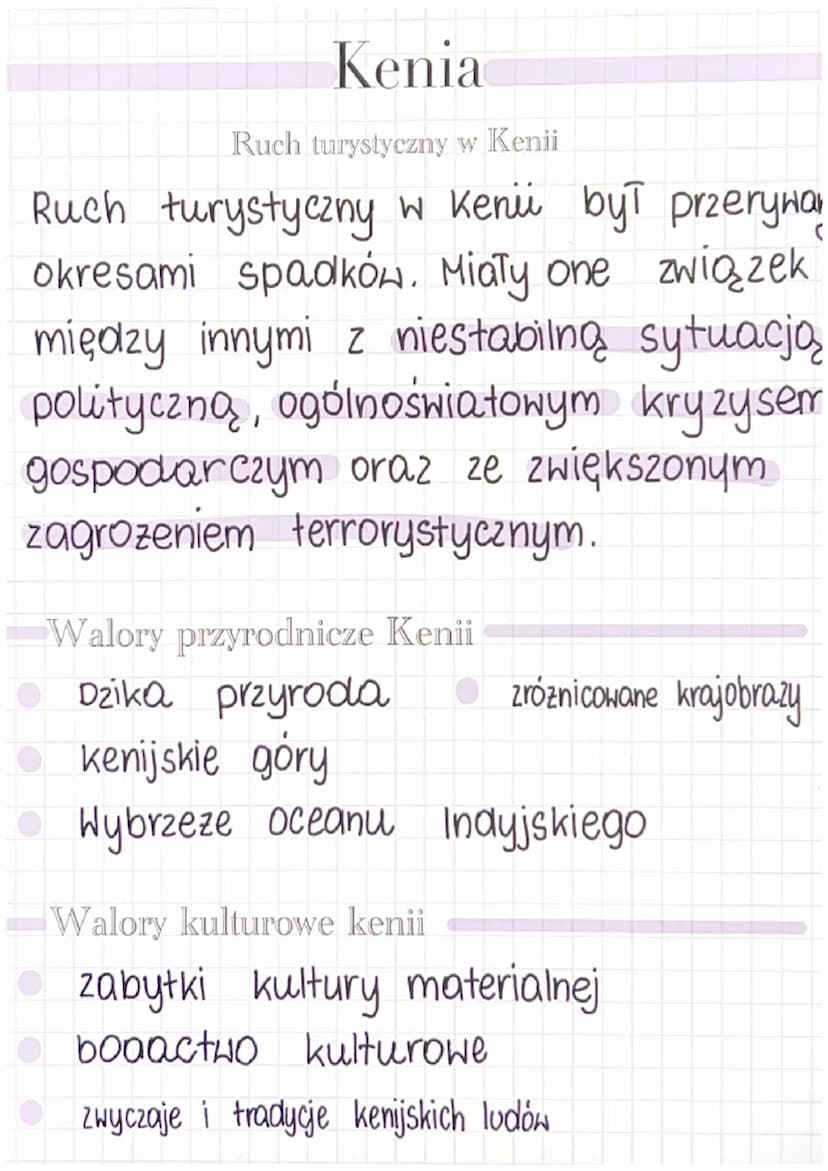 Kenia
Ruch turystyczny w Kenii
Ruch turystyczny w Kenii był
okresami spadków. Miały one związek
między innymi z niestabilną sytuacją
polityczną, ogólnoświatowym kryzysem
gospodarczym oraz ze zwiększonym
zagrożeniem terrorystycznym.
Walory przyrodnicze Kenii
Dzika przyroda zróżnicowane krajobrazy
kenijskie góry
Wybrzeże oceanu Indyjskiego
Walory kulturowe kenii
zabytki kultury materialnej
bogactwo kulturowe
zwyczaje i tradycje kenijskich ludów